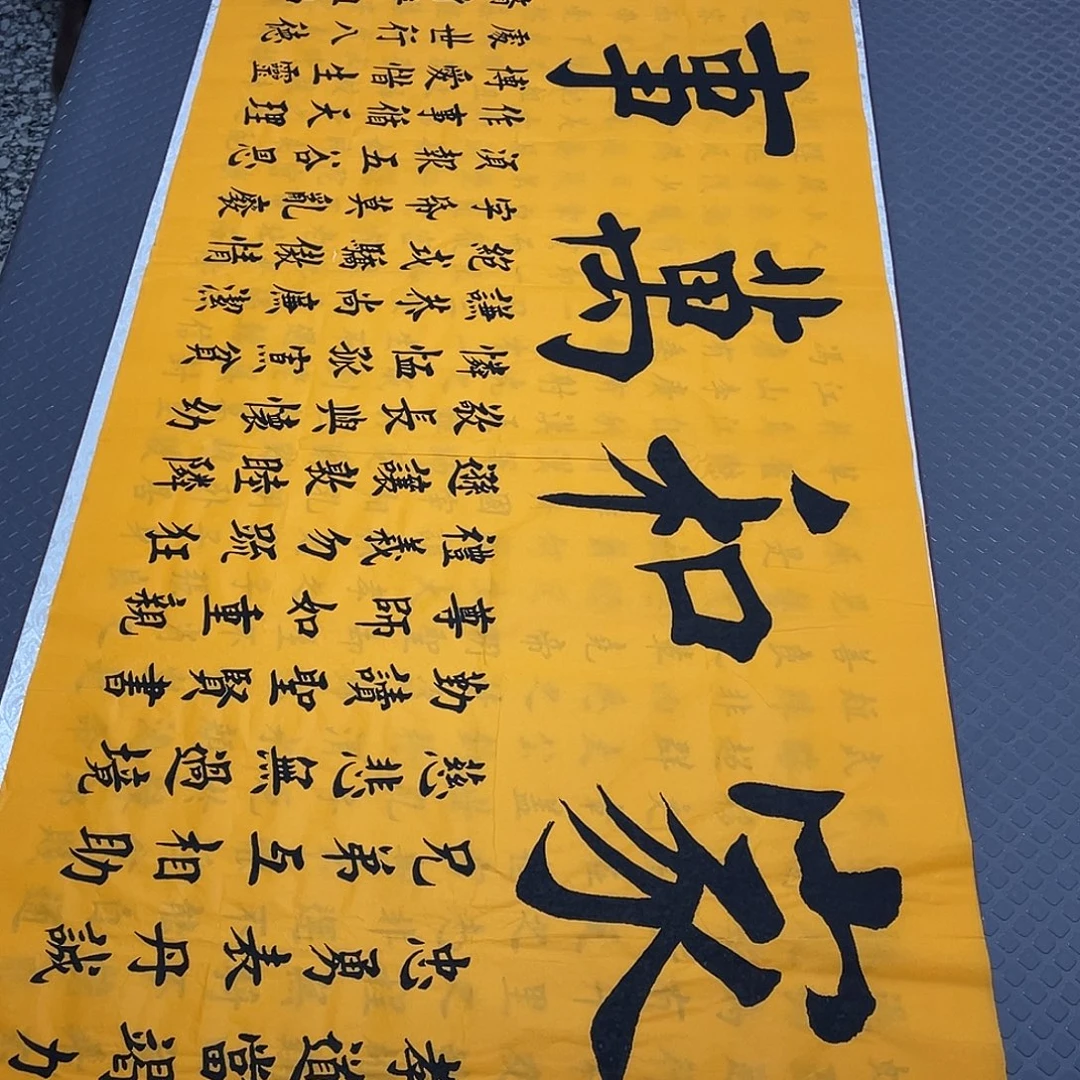 家和萬事
孝道當竭力
忠勇表丹誠
兄弟互相助
慈悲無過境
勤讀聖賢書
尊師如重親
禮義勿疏狂
遜讓敦睦鄰
敬長與懷幼
憐恤孤寡貧
謙恭尚廉潔
絕戒驕傲情
字紙莫亂廢
須報五谷恩
作事循天理
博愛惜生靈
處世行八德